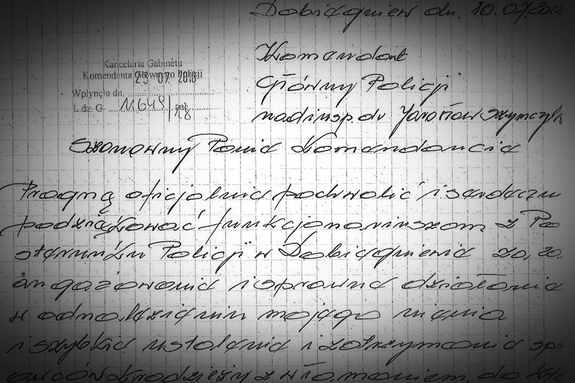 Dobiegniew dn. 10.07.2018
Kancelaria Gabinetu
Komendanta Głównego Policji
23 07. 2018
Wpłynęło dn.
L.dz. G- 11649/18
Komendant
Główny Policji
nadinsp. dr Jarosław Szymczyk
Szanowny Panie Komendancie
Pragnę oficjalnie pochwalić i serdeczn
podziękować funkcjonariuszom z Po
sterunku Policji w Dobiegniewie za za
angażowanie i sprawne działanie
w odnalezieniu mojego mienia
i szybkie ustalenie i zatrzymanie spr
awców kradzieży z włamaniem, do